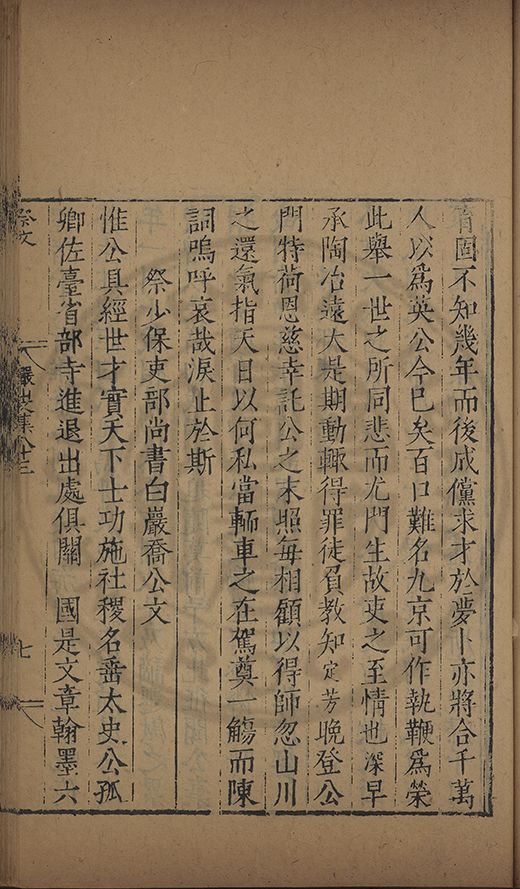 育固不知幾年而後成儻求才於夢卜亦將合千萬
人以爲英公今巳矣百口難名九京可作執鞭爲榮
此舉一世之所同悲而尤門生故吏之至情也深早
承陶冶遠大是期動輒得罪徒負教知定芳晚登公
門特荷恩慈幸託公之末照每相顧以得師忽山川
之還氣指天日以何私當輀車之在駕奠一觴而陳
詞嗚呼哀哉淚止於斯
祭少保吏部尚書白巖喬公文
惟公具經世才實天下士功施社稷名垂太史公孤
卿佐臺省部寺進退出處俱關 國是文章翰墨六
祭文
集八十三
七